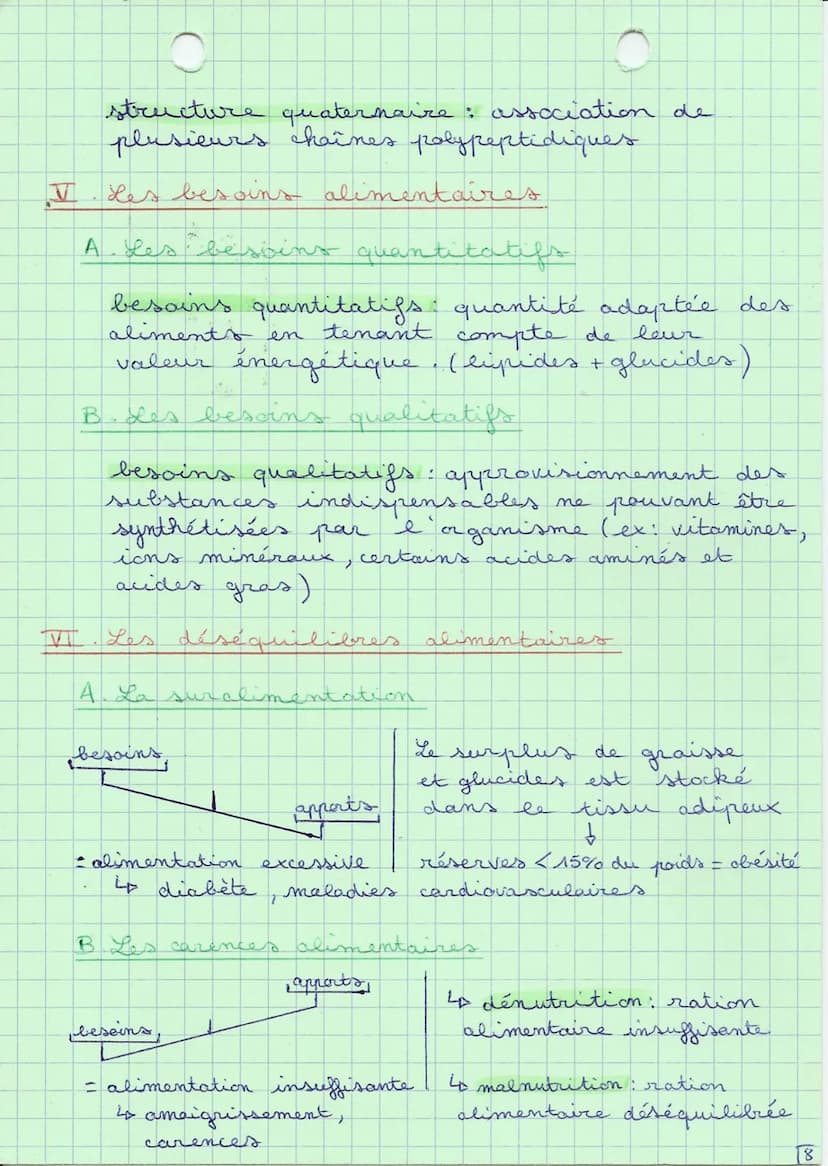 structure quaternaire : association de
plusieurs chaînes polypeptidiques
V. Les besoins alimentaires
A. Les besoins quantitatifs
besoins quantitatifs : quantité adaptée des
aliments en tenant compte de leur
valeur énergétique. (lipides + glucides)
B. Les besoins qualitatifs
besoins qualitatifs : approvisionnement des
substances indispensables ne pouvant être
synthétisées par l'organisme (ex: vitamines,
ions minéraux, certains acides aminés et
acides gras)
VI. Les déséquilibres alimentaires
A. La suralimentation
besoins
apports
= alimentation excessive
↳ diabète, maladies cardiovasculaires
Le surplus de graisse
et glucides est stocké
dans le tissu adipeux
↓
réserves < 15% du poids = obésité
B. Les carences alimentaires
apports
besoins
= alimentation insuffisante
↳ amaigrissement,
carences
↳ dénutrition : ration
alimentaire insuffisante
↳ malnutrition : ration
alimentaire déséquilibrée
8